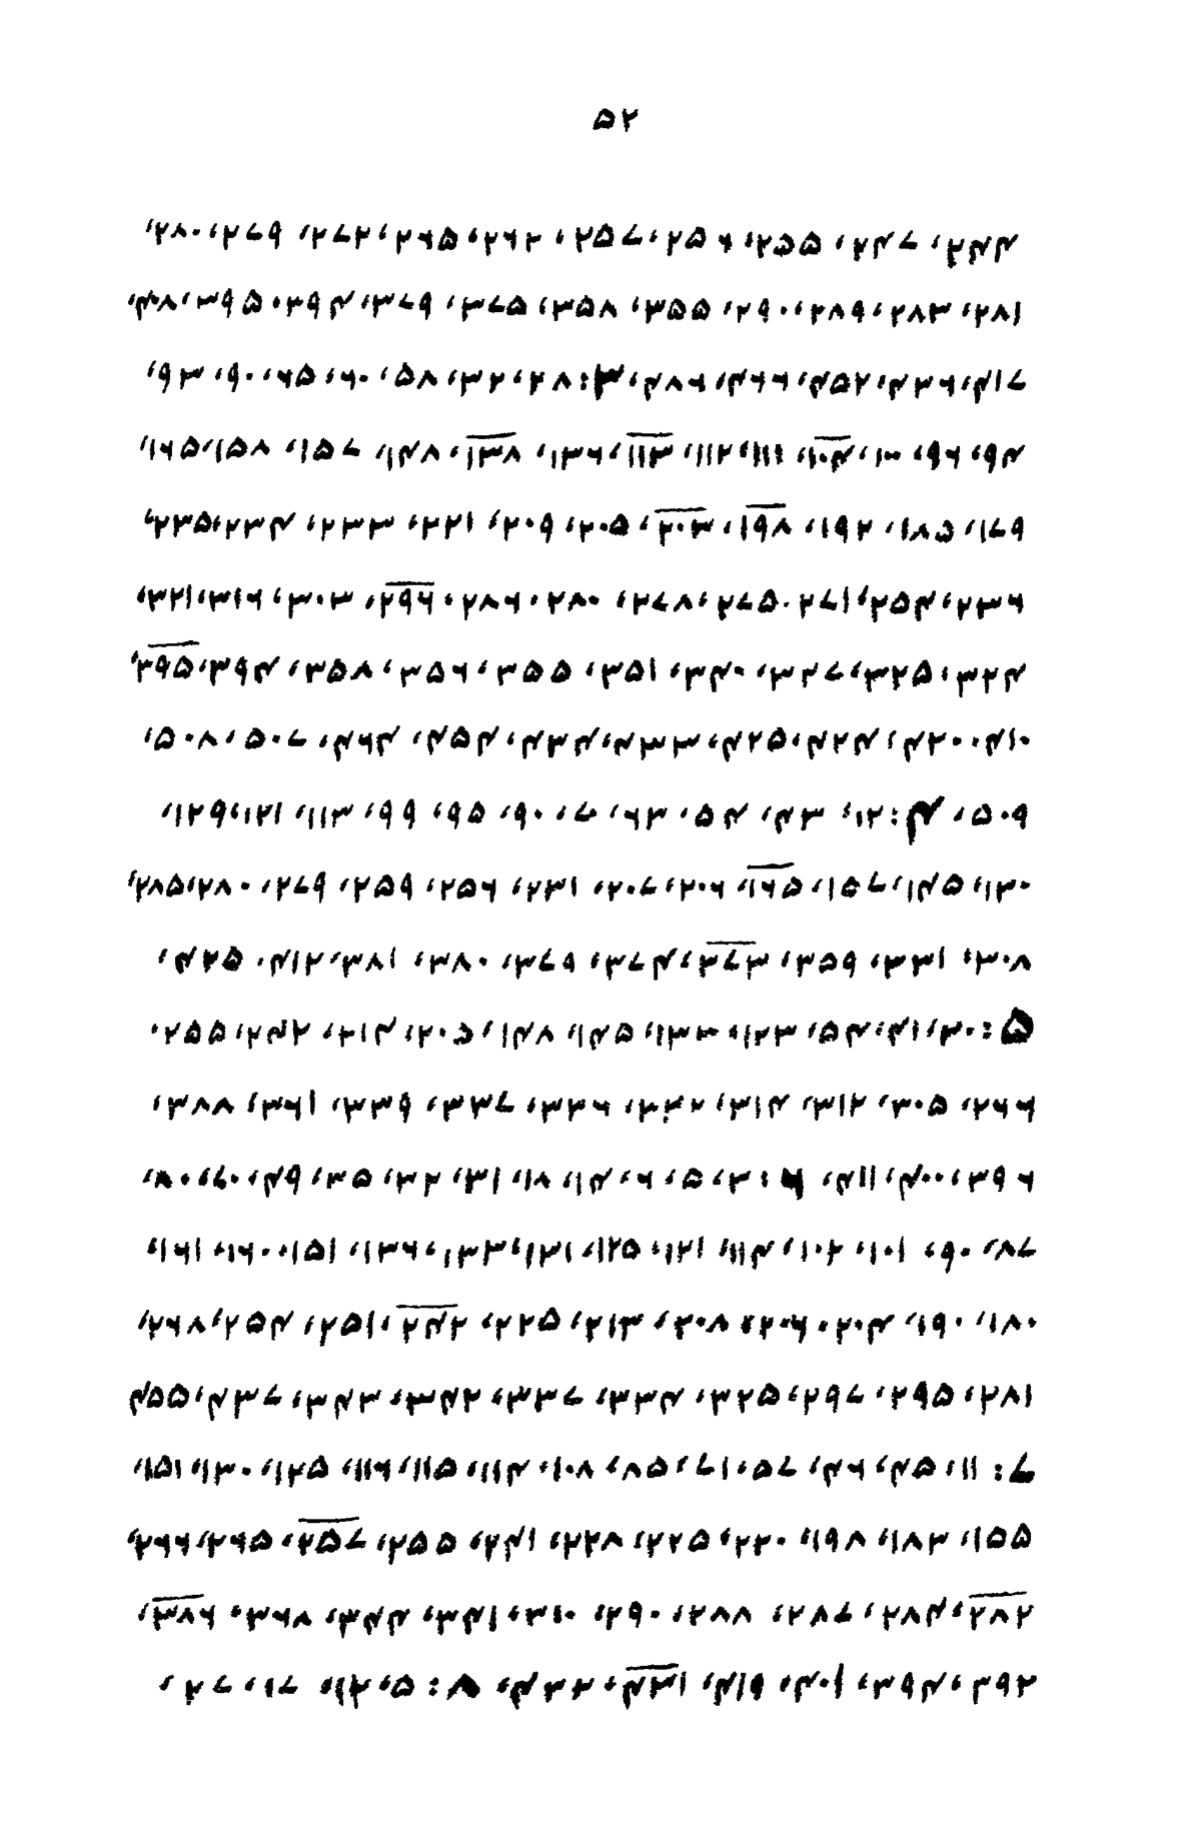 ۵۲
۲۴۴، ۲۴۷، ۲۵۵، ۲۵۶، ۲۵۷، ۲۶۲، ۲۶۵، ۲۷۲، ۲۷۹، ۲۸۰،
۲۸۱، ۲۸۳، ۲۸۹، ۲۹۰، ۳۵۵، ۳۵۸، ۳۷۵، ۳۷۹، ۳۹۴، ۳۹۵، ۴۰۸،
۴۱۷، ۴۳۶، ۴۵۲، ۴۶۶، ۴۸۶، ۳: ۲۸، ۳۲، ۵۸، ۶۰، ۶۵، ۹۰، ۹۳،
۹۴، ۹۶، ۱۰۰، ۱۰۴، ۱۱۱، ۱۱۲، ۱۱۳، ۱۳۶، ۱۳۸، ۱۴۸، ۱۵۷، ۱۵۸، ۱۶۵،
۱۷۹، ۱۸۵، ۱۹۲، ۱۹۸، ۲۰۳، ۲۰۵، ۲۰۹، ۲۲۱، ۲۳۳، ۲۳۴، ۲۳۵،
۲۳۶، ۲۵۴، ۲۷۱، ۲۷۵، ۲۷۸، ۲۸۰، ۲۸۶، ۲۹۶، ۳۰۳، ۳۱۶، ۳۲۱،
۳۲۴، ۳۲۵، ۳۲۷، ۳۴۰، ۳۵۱، ۳۵۵، ۳۵۶، ۳۵۸، ۳۹۴، ۳۹۵،
۴۱۰، ۴۲۰، ۴۲۴، ۴۲۵، ۴۳۳، ۴۳۴، ۴۵۴، ۴۶۴، ۵۰۷، ۵۰۸،
۵۰۹، ۴: ۱۲، ۴۳، ۵۴، ۶۳، ۷۰، ۹۰، ۹۵، ۹۹، ۱۱۳، ۱۲۱، ۱۲۹،
۱۳۰، ۱۴۵، ۱۵۷، ۱۶۵، ۲۰۶، ۲۰۷، ۲۳۱، ۲۵۶، ۲۵۹، ۲۷۹، ۲۸۰، ۲۸۵،
۳۰۸، ۳۳۱، ۳۵۹، ۳۷۳، ۳۷۴، ۳۷۹، ۳۸۰، ۳۸۱، ۴۱۲، ۴۲۵،
۵: ۳۰، ۴۱، ۵۴، ۱۲۳، ۱۳۳، ۱۴۵، ۱۴۸، ۲۰۵، ۲۱۴، ۲۴۲، ۲۵۵،
۲۶۶، ۳۰۵، ۳۱۲، ۳۱۴، ۳۳۶، ۳۳۷، ۳۳۹، ۳۶۱، ۳۸۸،
۳۹۶، ۴۰۰، ۴۱۱، ۶: ۳، ۵، ۶، ۱۴، ۱۸، ۳۱، ۳۲، ۳۵، ۴۹، ۶۰، ۷۰،
۸۷، ۹۰، ۱۰۱، ۱۰۲، ۱۱۴، ۱۲۱، ۱۲۵، ۱۳۱، ۱۳۳، ۱۳۶، ۱۵۱، ۱۶۰، ۱۶۱،
۱۸۰، ۱۹۰، ۲۰۴، ۲۰۶، ۲۰۸، ۲۱۳، ۲۲۵، ۲۴۲، ۲۵۱، ۲۵۴، ۲۶۸،
۲۸۱، ۲۹۵، ۲۹۷، ۳۲۵، ۳۳۴، ۳۳۷، ۳۴۲، ۳۴۳، ۴۳۷، ۴۵۵
۷: ۱۱، ۴۵، ۴۶، ۵۷، ۷۱، ۸۵، ۱۰۸، ۱۱۴، ۱۱۵، ۱۱۶، ۱۲۵، ۱۳۰، ۱۵۱،
۱۵۵، ۱۸۳، ۱۹۸، ۲۲۰، ۲۲۵، ۲۲۸، ۲۴۱، ۲۵۵، ۲۵۷، ۲۶۵، ۲۶۶،
۲۸۲، ۲۸۴، ۲۸۶، ۲۸۸، ۲۹۰، ۳۱۰، ۳۴۱، ۳۴۴، ۳۶۸، ۳۷۶،
۳۹۲، ۳۹۴، ۴۰۱، ۴۱۹، ۴۳۱، ۴۳۲، ۸: ۵، ۱۲، ۱۷، ۲۷،